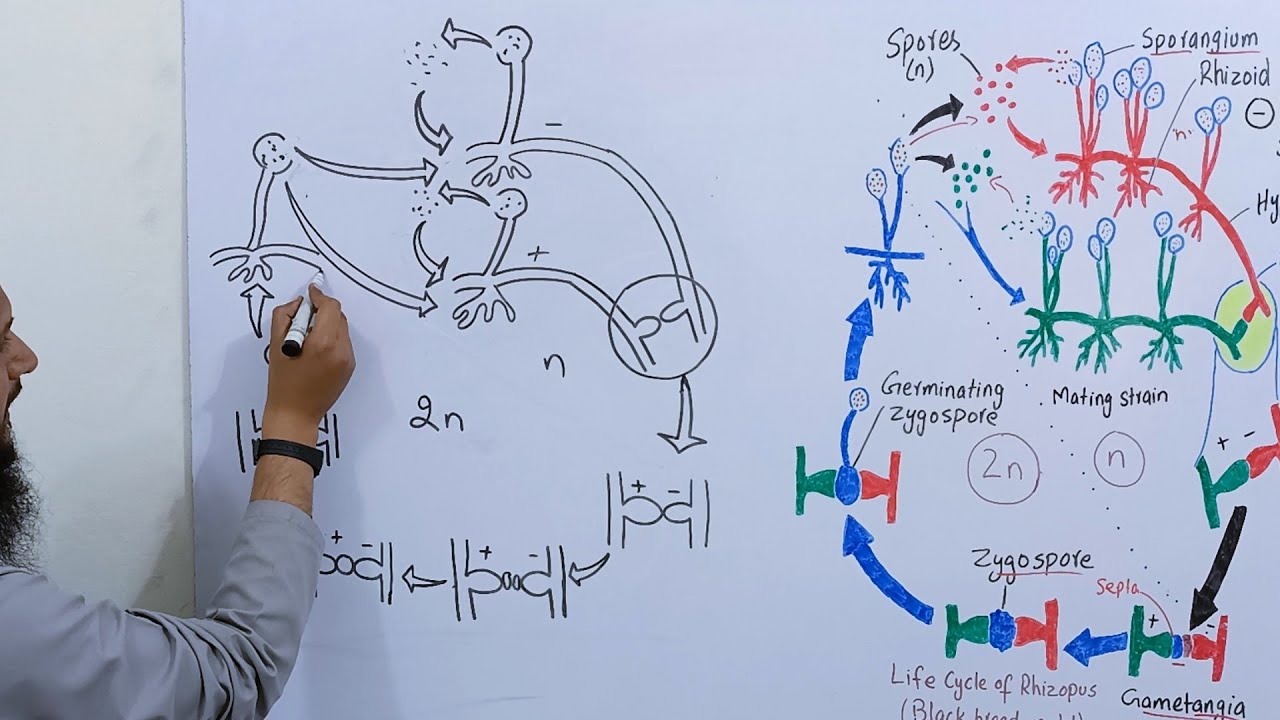 −
+
n
2n
+ −
+ −
+ −
Spores
(n)
Sporangium
Rhizoid
−
"n"
Hy
Germinating
zygospore
Mating strain
2n
n
+ −
Zygospore
Septa
+ −
−
Gametangia
Life Cycle of Rhizopus
(Black bread